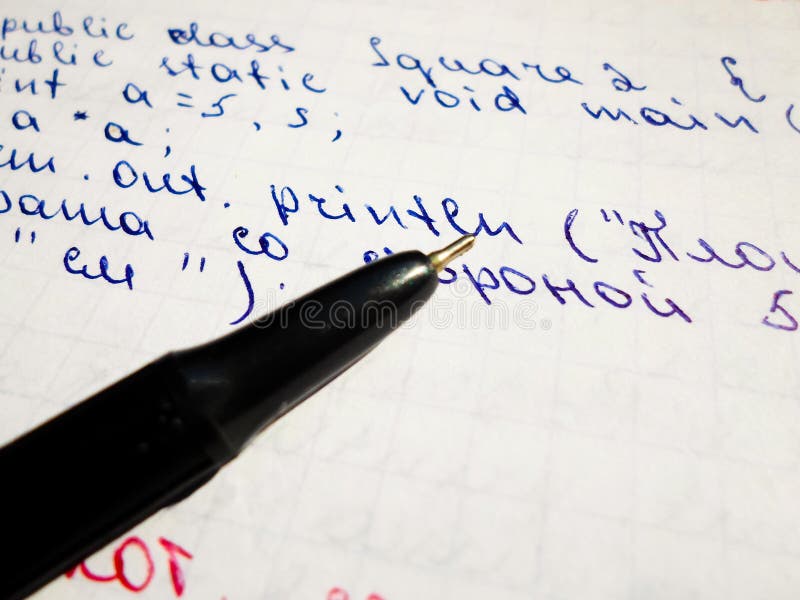 public class Square2 {
public static void main (
int a = 5, s;
a * a;
em.out.println ("Площ
рата со стороной 5
"см");
dreamstime